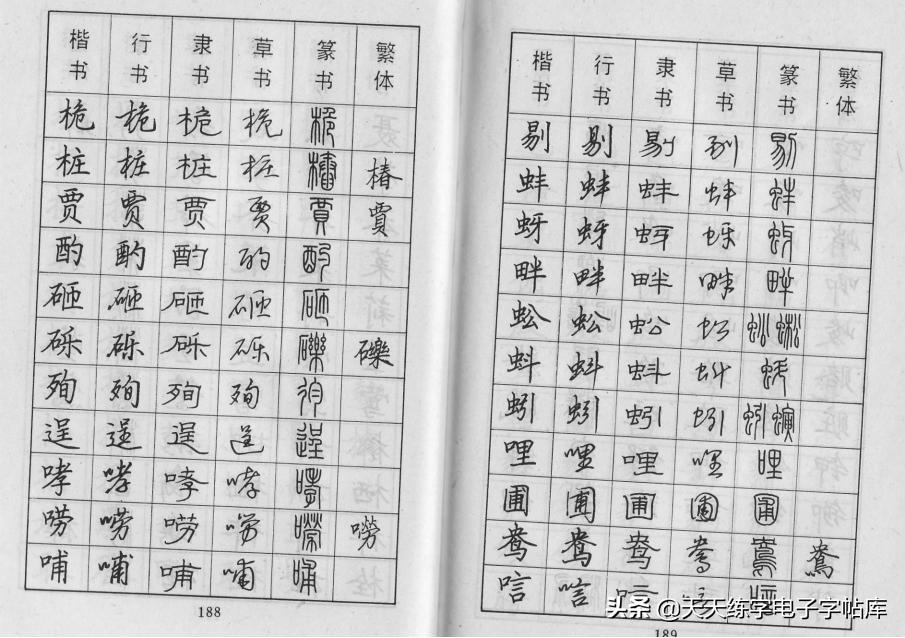 楷书 行书 隶书 草书 篆书 繁体
桅 桅 桅 桅 桅
桩 桩 桩 桩 樁 樁
贾 贾 贾 贾 賈 賈
酌 酌 酌 酌 酌
砸 砸 砸 砸 砸
砾 砾 砾 砾 礫 礫
殉 殉 殉 殉
逞 逞 逞 逞 逞
哮 哮 哮 哮 哮
唠 唠 唠 唠 嘮 嘮
哺 哺 哺 哺 哺
188
楷书 行书 隶书 草书 篆书 繁体
剔 剔 剔 剔 剔
蚌 蚌 蚌 蚌 蚌
蚜 蚜 蚜 蚜 蚜
畔 畔 畔 畔 畔
蚣 蚣 蚣 蚣 蚣
蚪 蚪 蚪 蚪 蚪
蚓 蚓 蚓 蚓 蚓 螾
哩 哩 哩 哩 哩
圃 圃 圃 圃 圃
鸯 鸯 鸯 鸯 鴦 鴦
唁 唁 唁 唁
189
头条 @天天练字电子字帖库